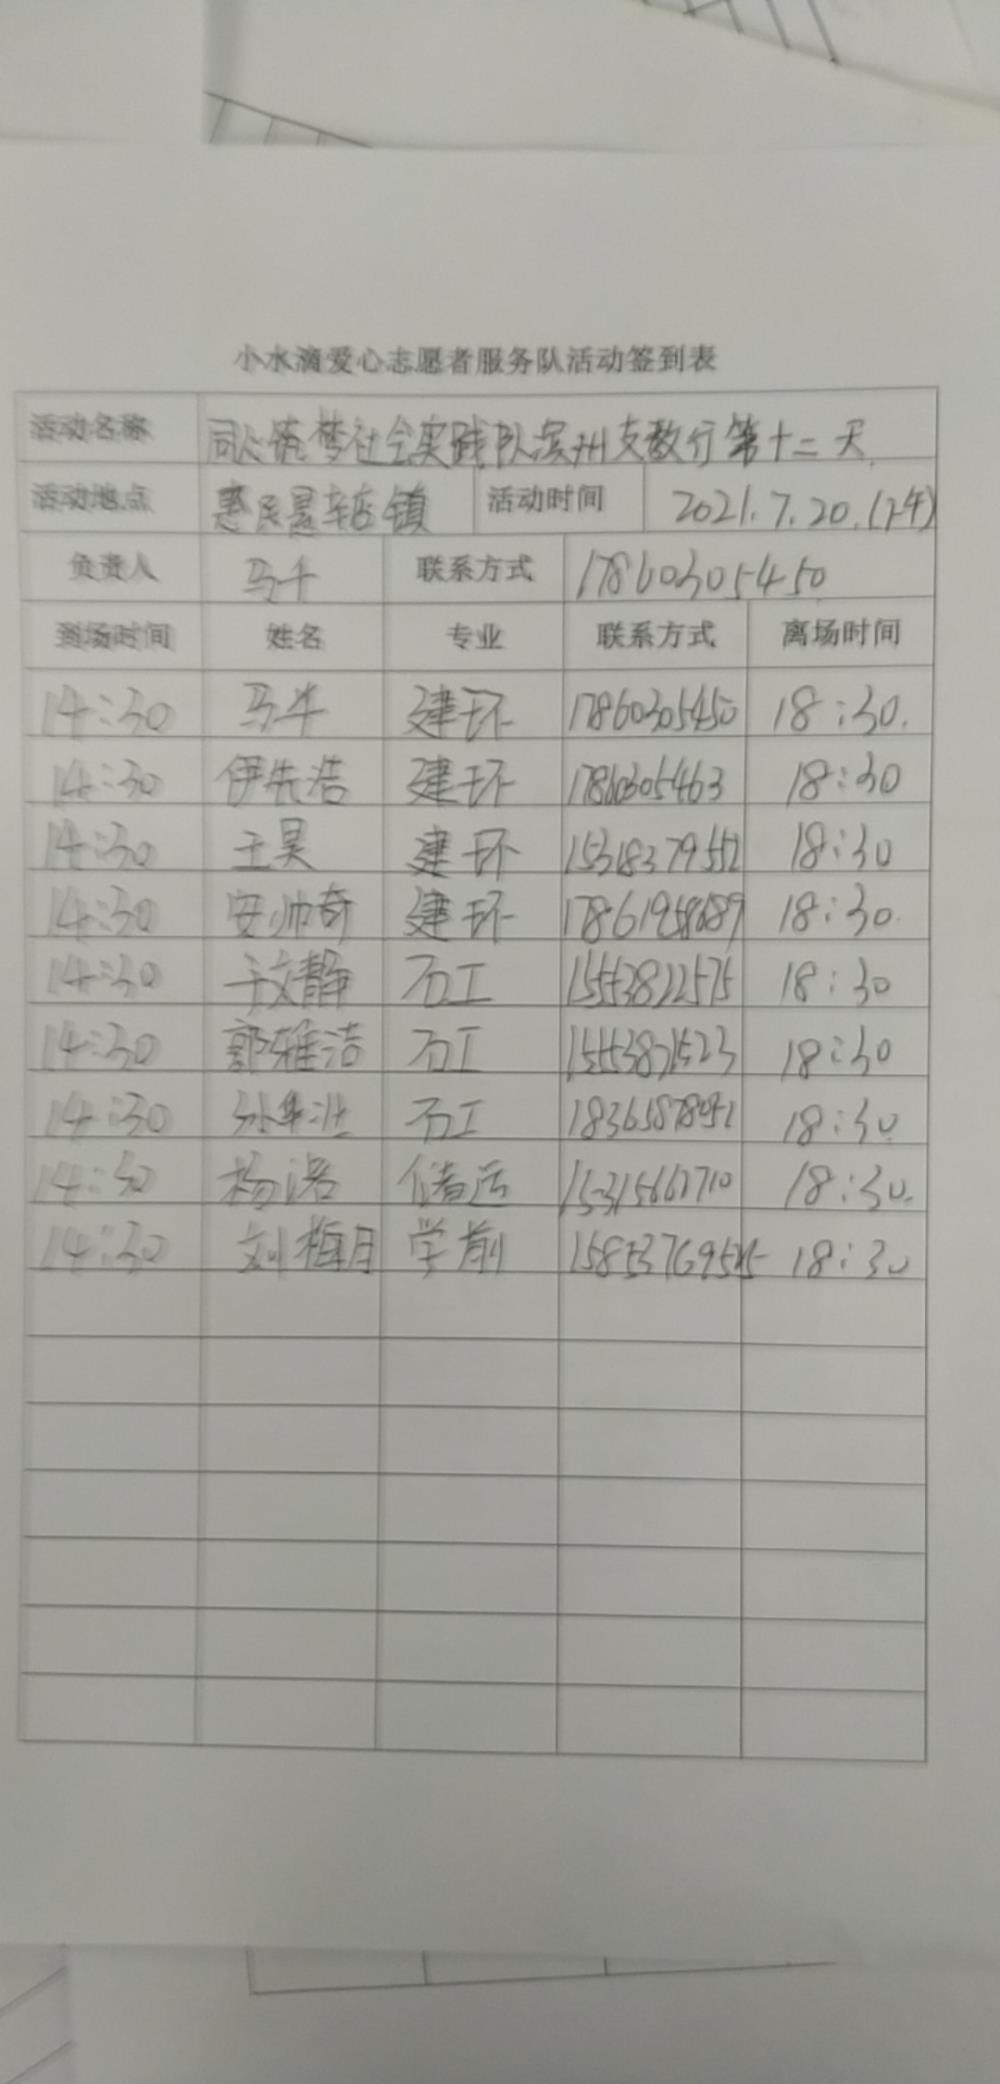 小水滴爱心志愿者服务队活动签到表
活动名称 同心筑梦社会实践队滨州支教行第十二天
活动地点 惠民县车店镇 活动时间 2021.7.20.(下午)
负责人 马牛 联系方式 17860305450
到场时间 姓名 专业 联系方式 离场时间
14:30 马牛 建环 17860305450 18:30.
14:30 伊先浩 建环 17860305463 18:30
14:30 王昊 建环 15318379552 18:30
14:30 安帅奇 建环 18:30.
14:30 于文静 石工 15553822575 18:30
14:30 郭雅洁 石工 18:30
14:30 石工 18:30
14:30 杨洛 储运 18:30.
14:30 刘梅月 学前 18:30